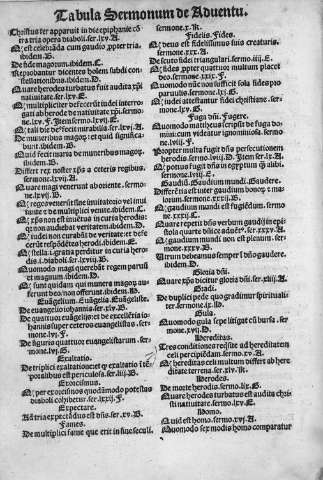 Tabula Sermonum de Aduentu.
Christus ter apparuit in die epiphanie cõ
tra tria opera diaboli.ser.lxv.A.
est celebrãda cum gaudio ꝓpter tria.
ibidem.B.
De fide magorum.ibidem.C.
Reprobantur dicentes holem subdi con
stellationibus.ibidem.D.
Quare herodes turbatus fuit audita xp̃i
natiuitate.ser.lxv.E.
multipliciter defecerũt iudei interro
gati ab herode de natiuitate xp̃i.sermo.
ne.lxv.F. Item sermo.lxvj.E.
tali die defecit mirabilia.ser.lxvj.A.
De numeribus magoꝝ: et quid significa-
bunt.ibidem.B.
Quid fecit maria de muneribus magoꝝ.
ibidem.B.
Differt rex noster xp̃s a ceteris regibus.
sermone.lxvij.A.
Quare magi venerunt ab oriente.sermo.
ne.lxvij.B.
ibidem.C.
noluit inueniri in curia herodis:
qz non audiebat veritatem.ibidem.D.
iudei non curabãt de veritate:et defe
cerũt respõdẽtes herodi.ibidem.E.
stella.i.gratia perditur in curia hero-
dis.i.diaboli.ser.lxvij.B.
Quomodo magi querebãt regem parum
et magnum.ibidem.D.
sunt quidam qui munera magoꝝ au-
ferunt deo:non offerunt.ibidem.D.
Euangelium. Euãgelia. Euãgeliste.
De euangelio iohannis.ser.xiv.B.
De quattuor euangelijs:et de excellẽtia io-
hannis super ceteros euangelistas.ser-
mone.lvj.F.
De figuris quattuor euangelistarum.ser-
mone.lvj.B.
Exaltatio.
De triplici exaltatione:et ꝙ exaltatio i tẽ-
poralibus est periculosa.ser.iiij.B.
Exorcismus.
per exorcismos quodãmodo potestas
diaboli cohibetur.ser.lxxij.F.
Expectare.
Ad tria expectãdus est dñs.ser.xv.B.
Fames.
De multiplici fame que erit in fine seculi.
sermone.x.K.
Fidelis. Fides.
deus est fidelissimus suis creaturis.
sermone.xxx.A.
De scuto fidei triangulari.sermo.iiij.E.
fides ꝓpter quattuor multum placet
deo.sermone.xxix.F.
Quomodo nũc non sufficit sola fides pro
paruulis.sermone.lxj.E.
iudei attestantur fidei christiane.ser.
lxj.G.
Fuga dñi. Fugere.
Quomodo mattheus scripsit de fuga do
mini:cum videatur ignominiosa.sermo.
ne.lvij.D.
Propter multa fugit dñs persecutionem
herodis.sermo.lviij.D. Item ser.lx.D.
potius fugit dñs in egyptum ꝙ alibi.
sermone.lvij.E.
Gaudiũ. Gaudium mundi. Gaudere.
Differẽtia est inter gaudium bonoꝝ z ma
lorum.sermone.xxxij.E.
gaudium mundi est fugiẽdum.sermo.
ne.xxxij.C.
Quare repetit bis verbum gaudij in epi-
stola quarte dñice aduẽt9.ser.xxxv.A.
gaudium mundi non est plenum.ser-
mone.xxxv.B.
Utrum debeamus semper i dño gaudere.
ibidem.D.
Gloria dñi.
Quare xp̃s dicitur gloria dñi.ser.xliij.A.
Gradi.
De duplici pede quo gradimur spirituali-
ter.sermone.ix.D.
Gula.
Quomodo gula sepe litigat cũ bursa.ser.
xxx.B.
Hereditas.
Tres conditiones reqsite ad hereditatem
celi percipiẽdam.ser.xv.A.
hereditas celi multum differt ab here
ditate terrena.ser.xiv.K.
Herodes.
De morte herodis.sermo.lix.G.
Quare herodes turbatus est audita chri-
sti natiuitate.sermo.lxv.E.
Homo.
Quid est homo.sermo.xvj.A.
Quomodo sex modis homo comparatur